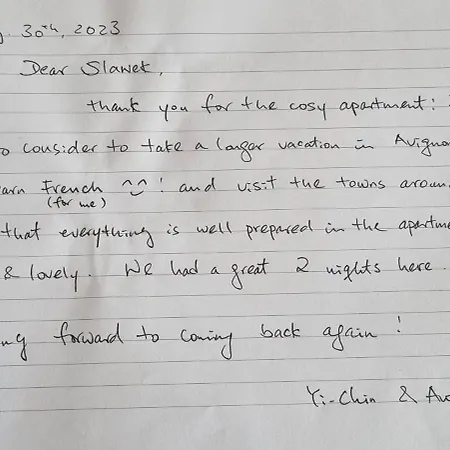 30th, 2023
Dear Slawek,
thank you for the cosy apartment!
o consider to take a longer vacation in Avigno
arn French ^^! and visit the towns aroun
(for me)
that everything is well prepared in the apartme
& lovely. We had a great 2 nights here.
ng forward to coming back again!
Yi-Chin &